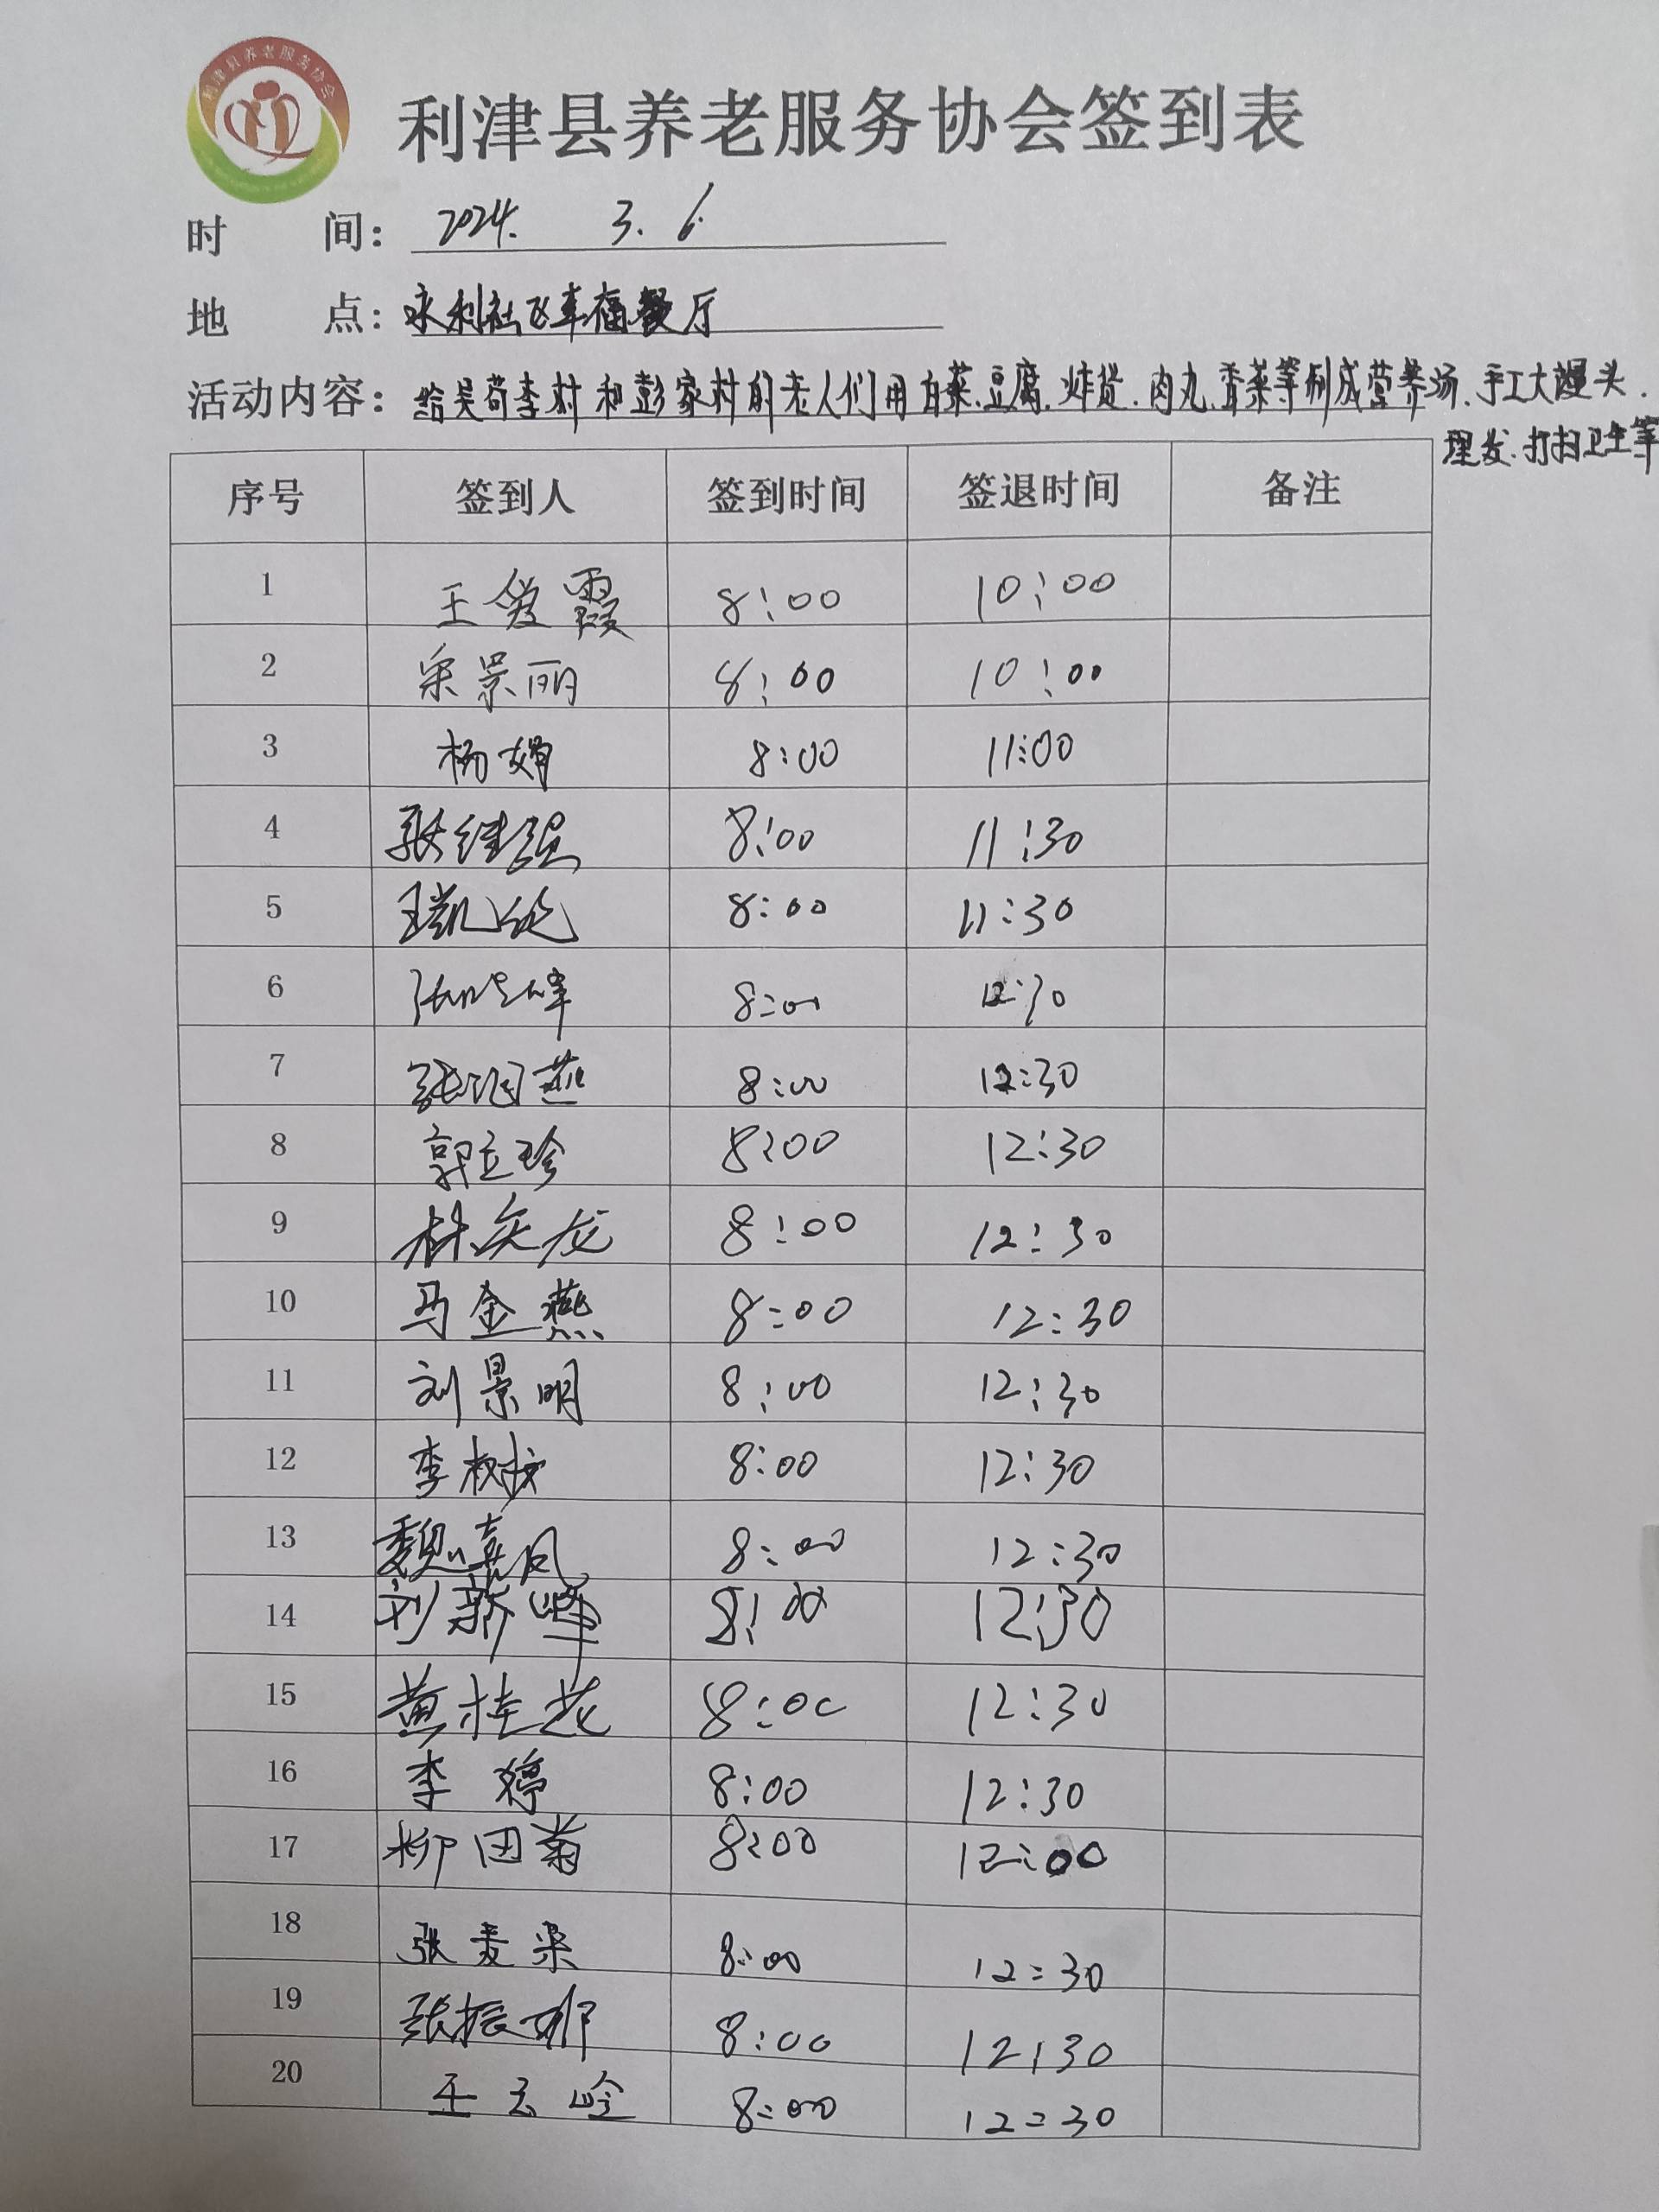 利津县养老服务协会
利津县养老服务协会签到表
时 间: 2024. 3. 6.
地 点: 永利社区幸福餐厅
活动内容: 给吴苟李村和彭家村的老人们用白菜.豆腐.炸货.肉丸.香菜等制成营养汤.手工大馒头.
理发.打扫卫生等
序号 签到人 签到时间 签退时间 备注
1 王爱霞 8:00 10:00
2 宋景丽 8:00 10:00
3 杨娟 8:00 11:00
4 张继强 8:00 11:30
5 王凯 8:00 11:30
6 8:00 12:30
7 张 燕 8:00 12:30
8 郭立珍 8:00 12:30
9 林 龙 8:00 12:30
10 马金燕 8:00 12:30
11 刘景明 8:00 12:30
12 李树 8:00 12:30
13 魏 凤 8:00 12:30
14 刘新峰 8:00 12:30
15 黄桂花 8:00 12:30
16 李婷 8:00 12:30
17 柳田菊 8:00 12:00
18 张麦渠 8:00 12:30
19 张振娜 8:00 12:30
20 王云岭 8:00 12:30